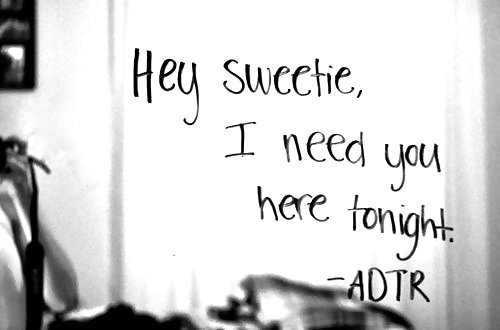 Hey sweetie,
I need you
here tonight.
-ADTR